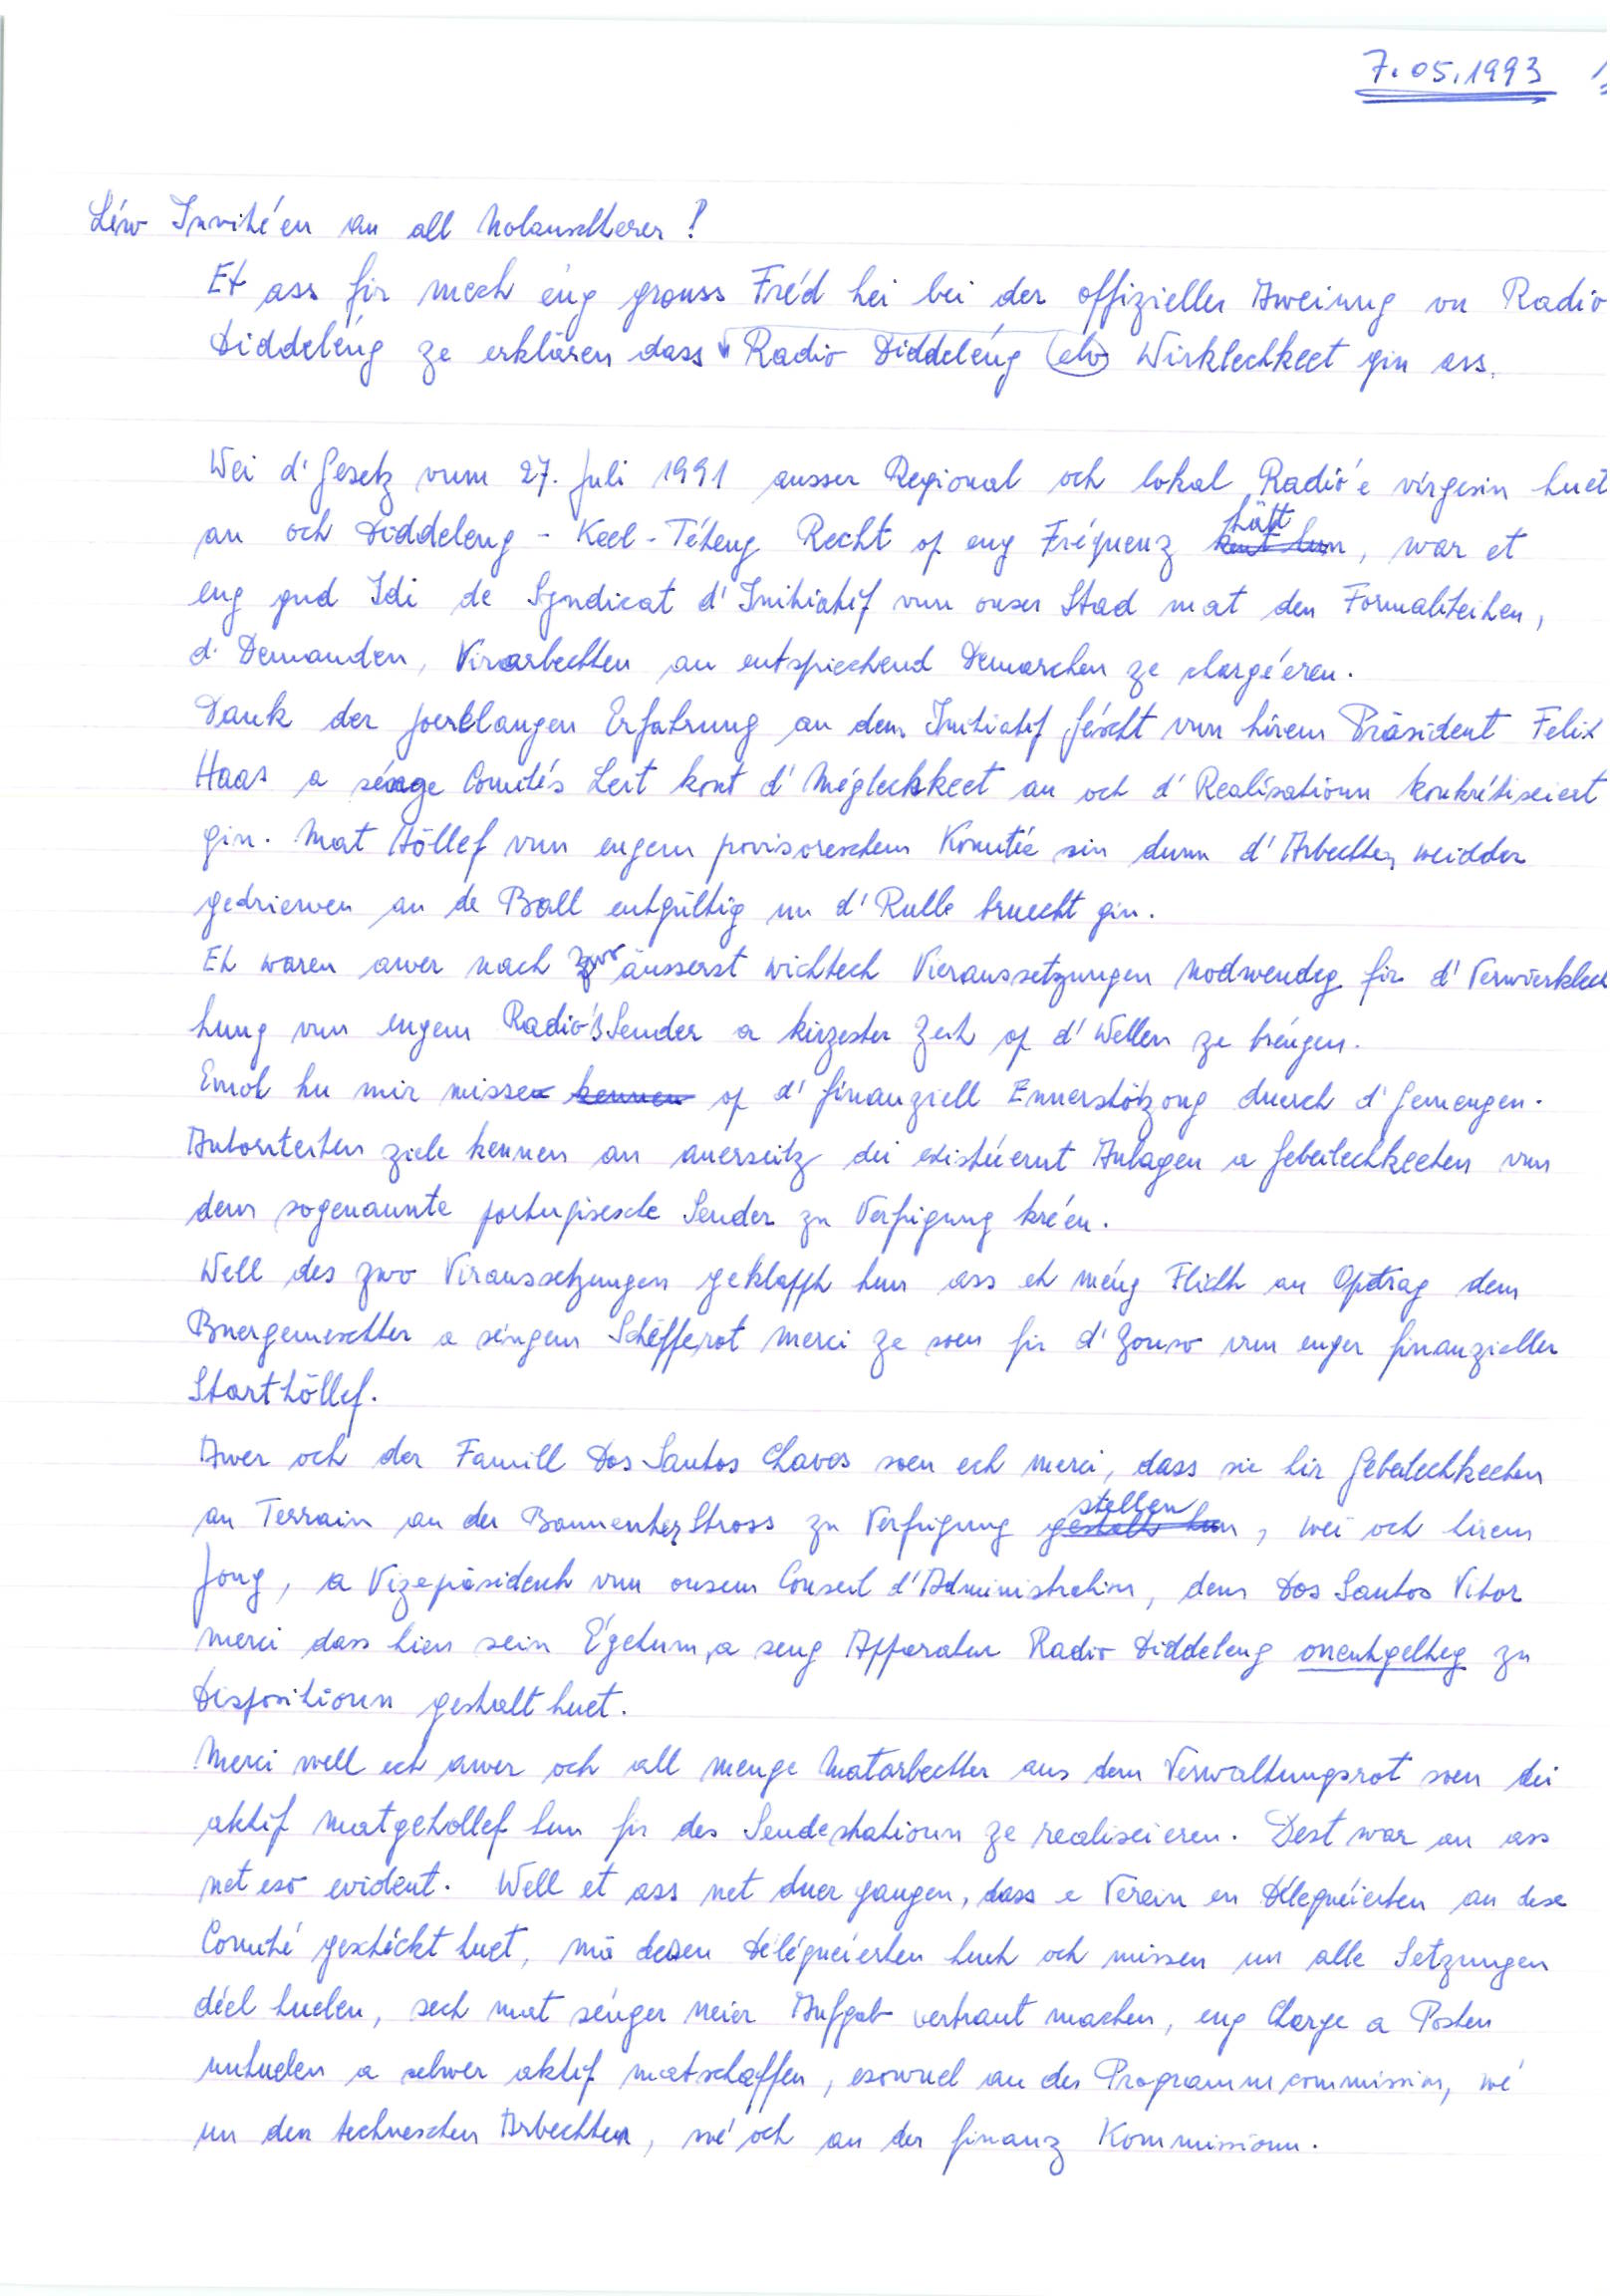 7.05.1993 1
Léiw Invité'en an all Nolauschterer!
Et ass fir mech éng grouss Fréd hei bei der offizieller Aweiung vu Radio
Diddeléng ze erklären dass Radio Diddeléng elo Wirklechkeet gin ass.
Wei d'Gesetz vum 27. Juli 1991 ausser Regional och lokal Radio'e virgesin huet
an och Diddeleng - Keel - Téteng Recht op eng Fréquenz hätt, war et
eng gud Idi de Syndicat d'Initiatif vun onser Stad mat den Formaliteiten,
d'Demanden, Virarbechten an entspriechend Demarchen ze chargéeren.
Dank der joerlangen Erfahrung an dem Initiatif Géscht vun hirem Präsident Felix
Haas a senge Comités Leit kont d'Méglechkeet an och d'Realisatioun konkrétiséiert
gin. Mat Höllef vun engem provisoreschem Komitée sin dunn d'Arbechten weidder
gedriewen an de Ball entgülteg un d'Rulle bruecht gin.
Et waren awer nach zwo äusserst wichtech Vieraussetzungen nodwendeg fir d'Verwierklec
hung vun engem Radio's Sender a kirzester Zeit op d'Wellen ze bréngen.
Emol hu mir misse op d'finanziell Ennerstötzong duerch d'Gemengen-
Autoriteiten ziele kennen an anerseitz dei existéierent Anlagen a Gebeilechkeeten vun
dem sogenannte portugisesche Sender zu Verfügung kréen.
Well des zwo Viraussetzungen geklappt hun ass et méng Flicht an Optrag dem
Buergemeschter a séngem Schëfferot merci ze soen fir d'Zouso vun enger finanzieller
Starthöllef.
Awer och der Famill Dos Santos Chaves soen ech merci, dass sie hir Gebeilechkeeten
an Terrain an der Bannenter Stross zu Verfügung stellen, wei och hirem
Jong, a Vizepräsident vun onsem Conseil d'Administration, dem Dos Santos Vitor
merci dass hien sein Égetum, a seng Apparatur Radio Diddeleng onentgelteg zu
Dispositioun gestallt huet.
Merci well ech awer och all menge Matarbechter aus dem Verwaltungsrot soen dei
aktif matgehollef hun fir des Sendestatioun ze realiseieren. Dest war an ass
net eso evident. Well et ass net duer gangen, dass e Verein en Délegueierten an dese
Comité geschéckt huet, mä desen Délégueierten huet och missen un alle Setzungen
déel huelen, sech mat sénger neier Aufgab vertraut machen, eng Charge a Posten
unhuelen a selwer aktif matschaffen, esowuel an der Programmcommission, wé
un den techneschen Arbechten, wé och an der finanz Kommissioun.